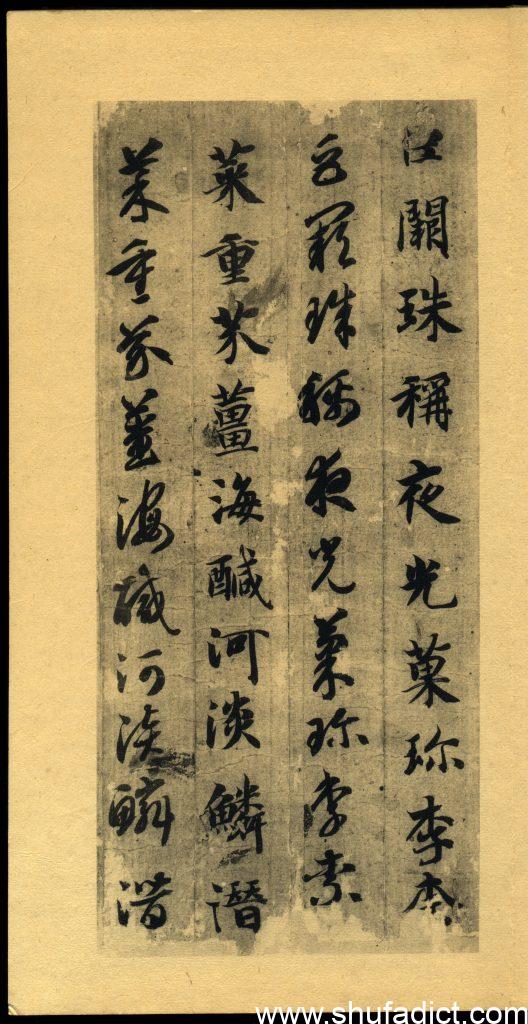 巨闕珠稱夜光菓珍李柰
巨闕珠稱夜光菓珍李柰
菜重芥薑海醎河淡鱗潛
菜重芥薑海醎河淡鱗潛
www.shufadict.com